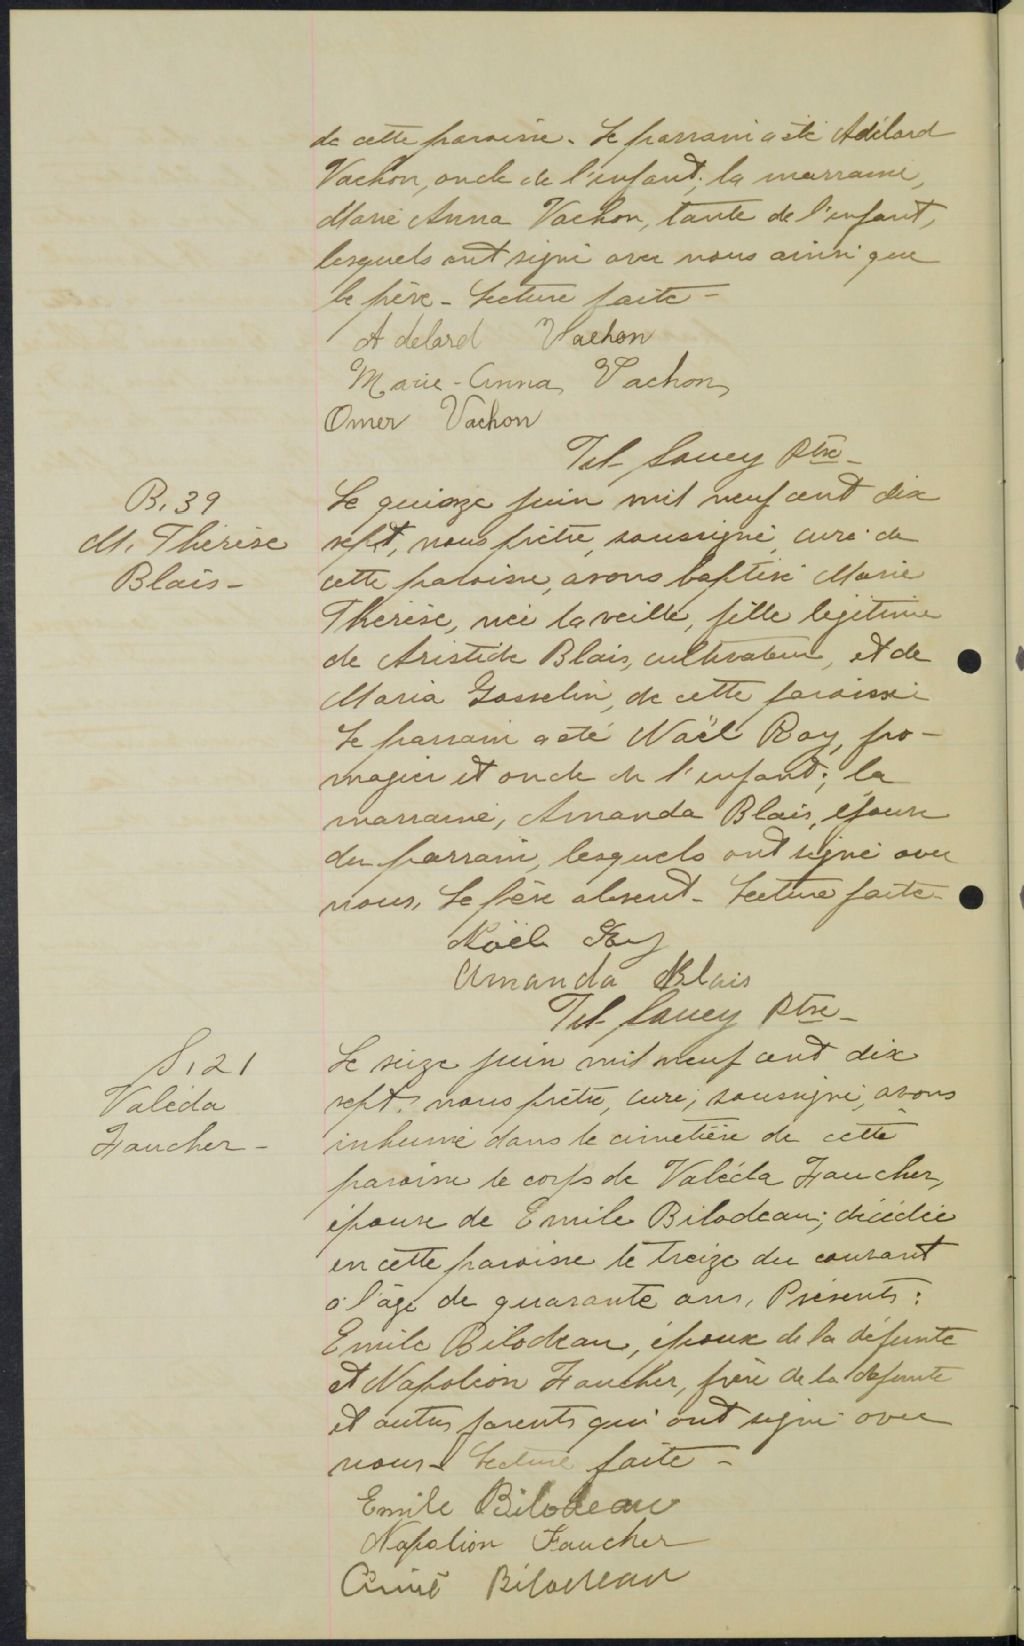 de cette paroisse. Le parrain a été Adélard
Vachon, oncle de l'enfant; la marraine,
Marie Anna Vachon, tante de l'enfant,
lesquels ont signé avec nous ainsi que
le père - Lecture faite -
Adelard Vachon
Marie-Anna Vachon
Omer Vachon
Ptre -
B. 39
M. Thérèse
Blais -
Le quinze juin mil neuf cent dix
sept, nous prêtre, soussigné, curé de
cette paroisse, avons baptisé Marie
Thérèse, née la veille, fille légitime
de Aristide Blais, cultivateur, et de
Maria Gosselin, de cette paroisse
Le parrain a été Noël Roy, fro-
mager et oncle de l'enfant; la
marraine, Amanda Blais, épouse
du parrain, lesquels ont signé avec
nous. Le père absent - Lecture faite -
Noël Roy
Amanda Blais
Ptre -
S. 21
Valéda
Faucher -
Le seize juin mil neuf cent dix
sept, nous prêtre, curé, soussigné, avons
inhumé dans le cimetière de cette
paroisse le corps de Valéda Faucher,
épouse de Emile Bilodeau; décédée
en cette paroisse le treize du courant
à l'âge de quarante ans. Présents:
Emile Bilodeau, époux de la défunte
et Napoléon Faucher, frère de la défunte
et autres parents qui ont signé avec
nous - Lecture faite -
Emile Bilodeau
Napoléon Faucher
Aimé Bilodeau